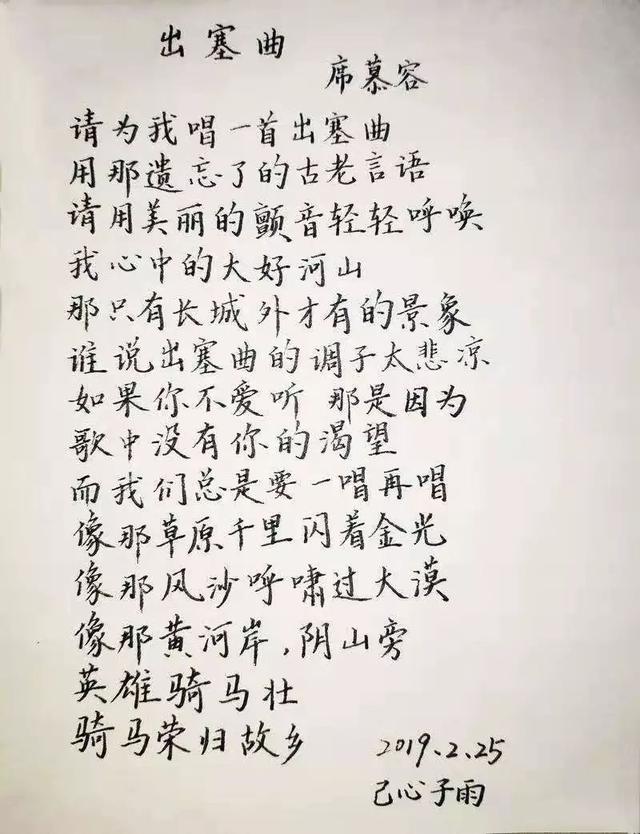 出塞曲
席慕容
请为我唱一首出塞曲
用那遗忘了的古老言语
请用美丽的颤音轻轻呼唤
我心中的大好河山
那只有长城外才有的景象
谁说出塞曲的调子太悲凉
如果你不爱听 那是因为
歌中没有你的渴望
而我们总是要一唱再唱
像那草原千里闪着金光
像那风沙呼啸过大漠
像那黄河岸,阴山旁
英雄骑马壮
骑马荣归故乡
2019.2.25
己心子雨